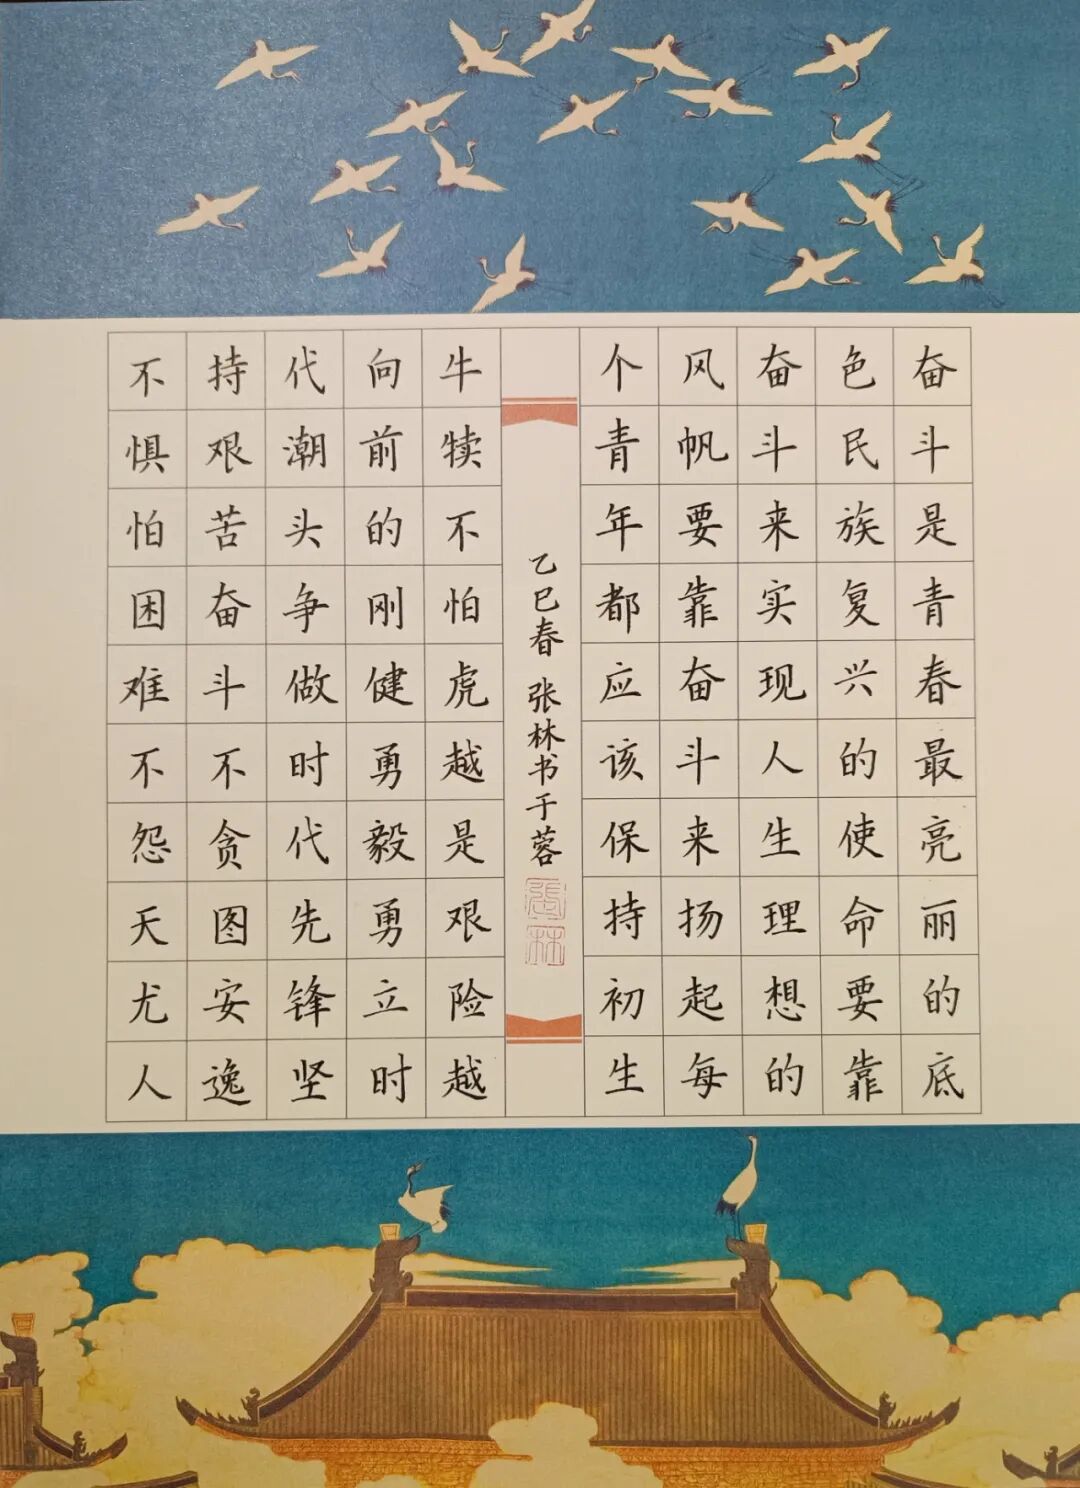 奋斗是青春最亮丽的底
色民族复兴的使命要靠
奋斗来实现人生理想的
风帆要靠奋斗来扬起每
个青年都应该保持初生
牛犊不怕虎越是艰险越
向前的刚健勇毅勇立时
代潮头争做时代先锋坚
持艰苦奋斗不贪图安逸
不惧怕困难不怨天尤人
乙巳春 张林书于蓉
張林